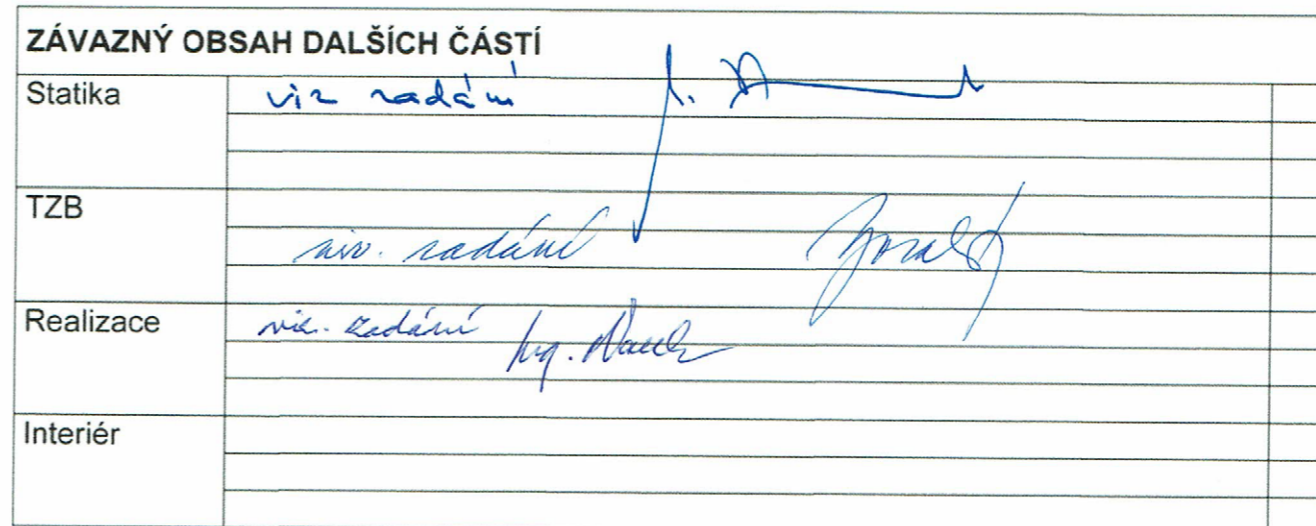 ZÁVAZNÝ OBSAH DALŠÍCH ČÁSTÍ
Statika
viz zadání
TZB
viz. zadání
Realizace
viz. zadání
Ing.
Interiér